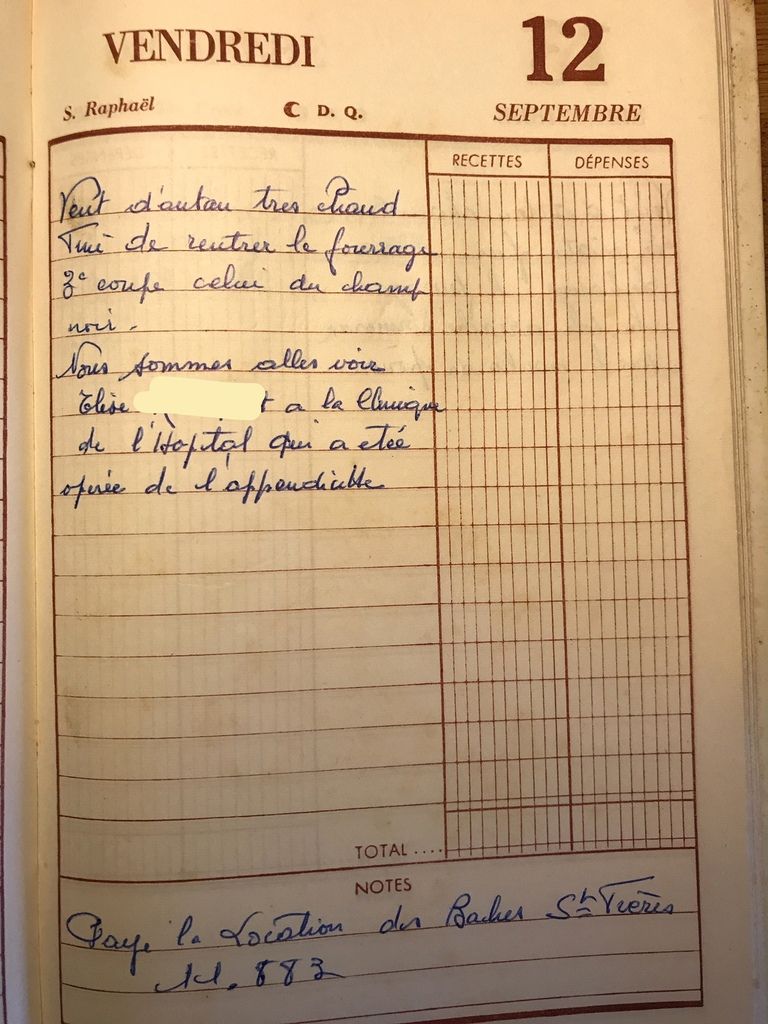 VENDREDI 12
S. Raphaël ☾ D. Q. SEPTEMBRE
RECETTES DÉPENSES
Vent d'autan tres chaud
Fini de rentrer le fourrage
3e coupe celui du champ
noir.
Nous sommes alles voir
Elise t a la Clinique
de l'Hopital qui a eteé
operée de l'appendicitte
TOTAL ....
NOTES
Paye la Location des Baches
11.883